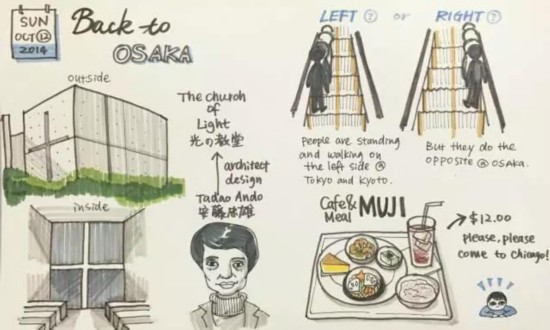 SUN
OCT 12
2014
Back to
OSAKA
outside
The church
of
Light
光の教堂
architect
design
Tadao Ando
安藤忠雄
inside
LEFT ? or RIGHT ?
People are standing
and walking on
the left side @
Tokyo and Kyoto.
But they do the
opposite @ OSAKA.
Cafe&
Meal MUJI
$12.00
please, please
come to Chicago!